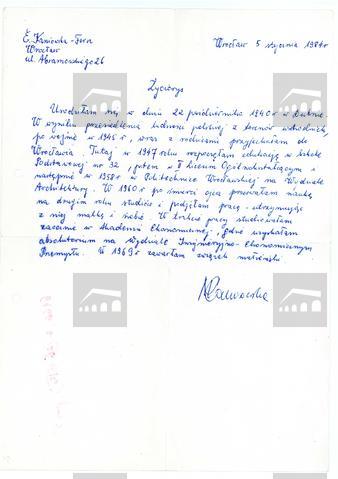 Wrocław 5 stycznia 1984r
Wrocław
ul. Abramowskiego 26
Życiorys
Urodziłam się w dniu 22 października 1940 r w
W wyniku przesiedlenia ludności polskiej z terenów wschodnich,
po wojnie w 1945 r, wraz z rodzicami przyjechałam do
Wrocławia. Tutaj w 1947 roku rozpoczęłam edukację w Szkole
Podstawowej nr 32, potem w II Liceum Ogólnokształcącym i
następnie w 1958 r w Politechnice Wrocławskiej na Wydziale
Architektury. W 1960 r po śmierci ojca przerwałam naukę
na drugim roku studiów i podjęłam pracę - utrzymując
z niej matkę i siebie. W trakcie pracy studiowałam
zaocznie w Akademii Ekonomicznej, gdzie uzyskałam
absolutorium na Wydziale Inżyneryjno-Ekonomicznym
Przemysłu. W 1969 r zawarłam związek małżeński.